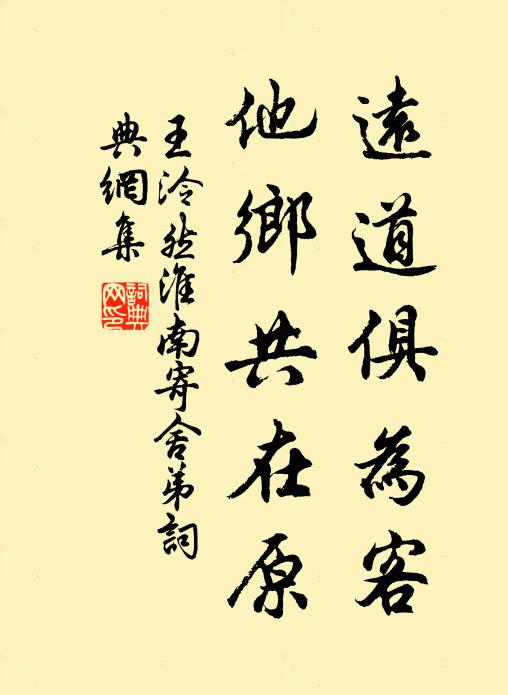 遠道俱為客
他鄉共在原
王泠然淮南寄舍弟詞
典網集
詞典
网印